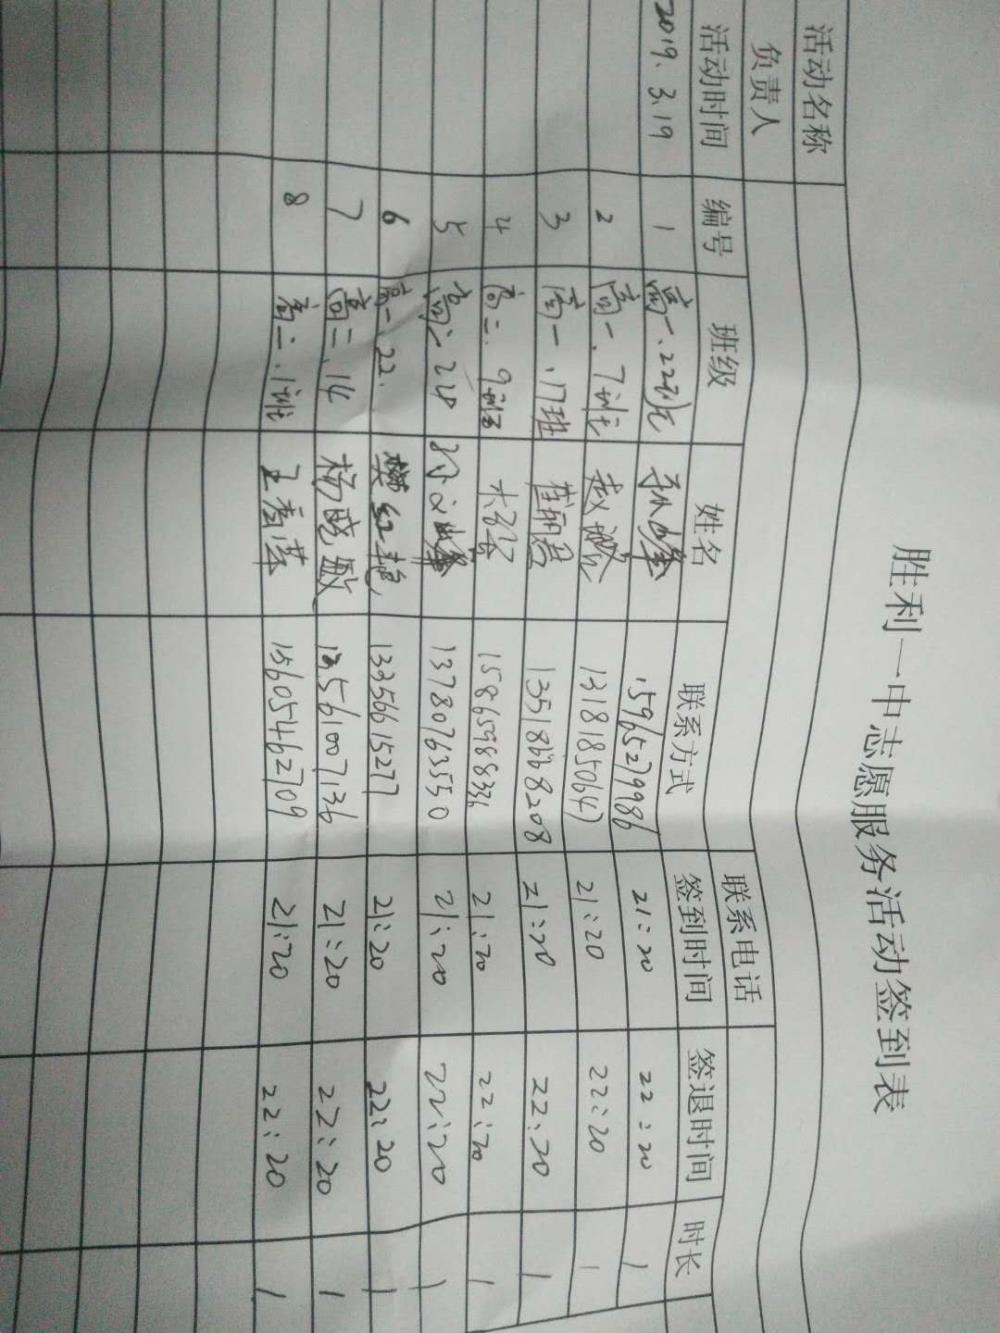 胜利一中志愿服务活动签到表
活动名称
负责人 联系电话
活动时间 编号 班级 姓名 联系方式 签到时间 签退时间 时长
2019.3.19 1 高一.22班 孙峰 15965279986 21:20 22:20 1
2 高一.7班 赵 13181850647 21:20 22:20 1
3 高一.17班 崔朝君 13518668208 21:20 22:20 1
4 高二.9班 21:20 22:20 1
5 高二28 孙义峰 13780763550 21:20 22:20 1
6 高一.22. 樊红艳 13356615277 21:20 22:20 1
7 高二.14 杨晓敏 13561007136 21:20 22:20 1
8 高二.1班 王彦萍 15605462709 21:20 22:20 1